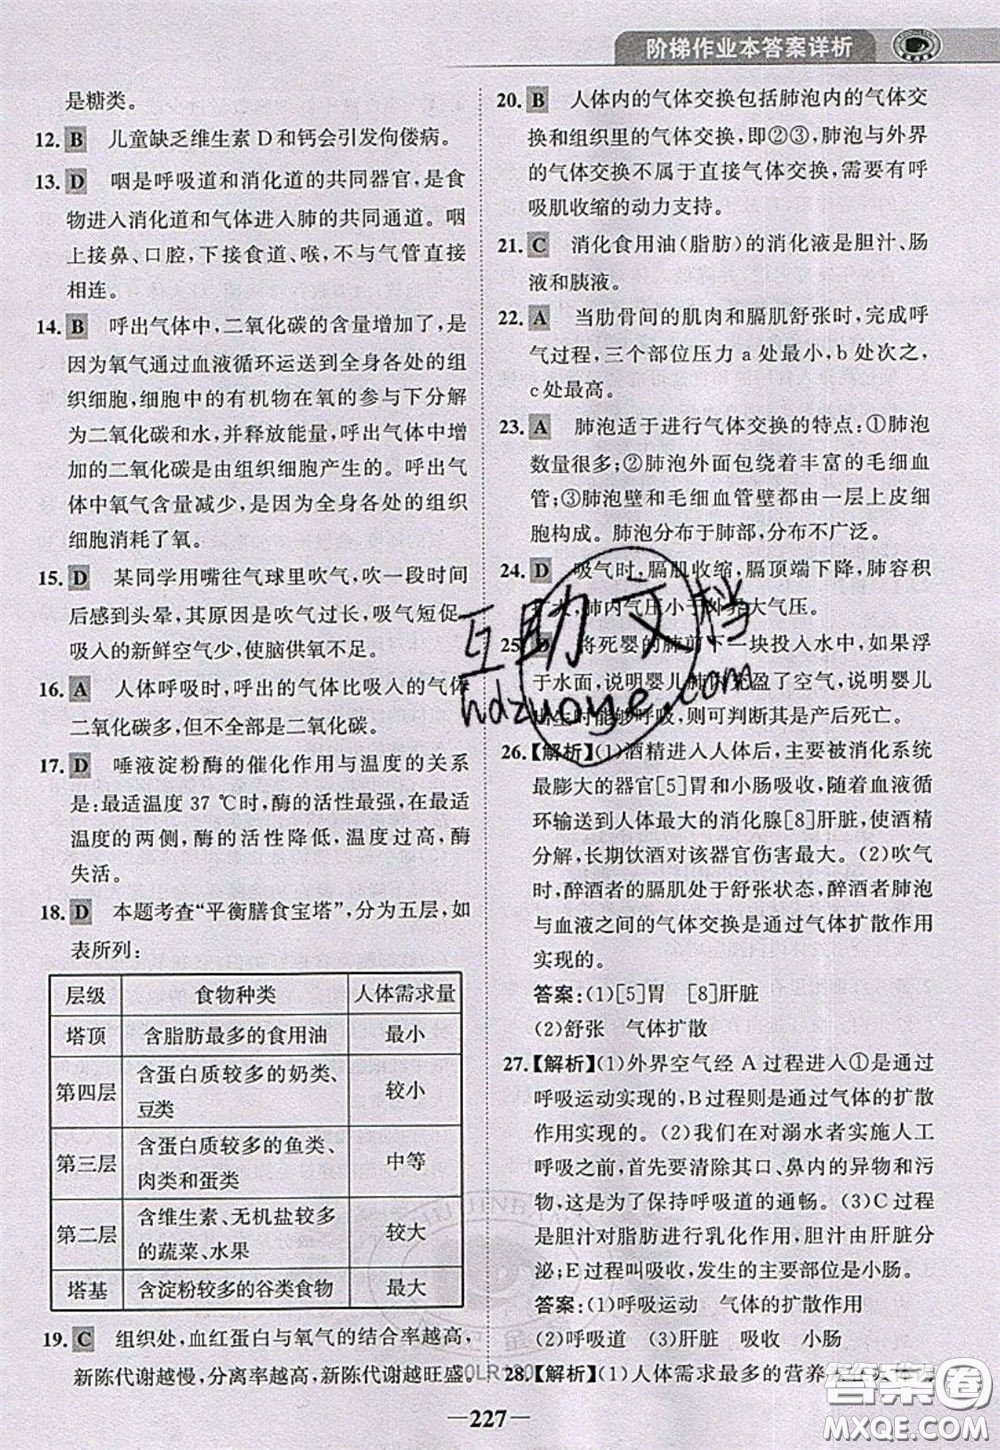 阶梯作业本答案详析
是糖类。
12. B 儿童缺乏维生素 D 和钙会引发佝偻病。
13. D 咽是呼吸道和消化道的共同器官,是食
物进入消化道和气体进入肺的共同通道。咽
上接鼻、口腔,下接食道、喉,不与气管直接
相连。
14. B 呼出气体中,二氧化碳的含量增加了,是
因为氧气通过血液循环运送到全身各处的组
织细胞,细胞中的有机物在氧的参与下分解
为二氧化碳和水,并释放能量,呼出气体中增
加的二氧化碳是由组织细胞产生的。呼出气
体中氧气含量减少,是因为全身各处的组织
细胞消耗了氧。
15. D 某同学用嘴往气球里吹气,吹一段时间
后感到头晕,其原因是吹气过长,吸气短促,
吸入的新鲜空气少,使脑供氧不足。
16. A 人体呼吸时,呼出的气体比吸入的气体
二氧化碳多,但不全部是二氧化碳。
17. D 唾液淀粉酶的催化作用与温度的关系
是:最适温度 37 ℃时,酶的活性最强,在最适
温度的两侧,酶的活性降低,温度过高,酶
失活。
18. D 本题考查“平衡膳食宝塔”,分为五层,如
表所列:
层级 食物种类 人体需求量
塔顶 含脂肪最多的食用油 最小
第四层 含蛋白质较多的奶类、
豆类 较小
第三层 含蛋白质较多的鱼类、
肉类和蛋类 中等
第二层 含维生素、无机盐较多
的蔬菜、水果 较大
塔基 含淀粉较多的谷类食物 最大
19. C 组织处,血红蛋白与氧气的结合率越高,
新陈代谢越慢,分离率越高,新陈代谢越旺盛。
20. B 人体内的气体交换包括肺泡内的气体交
换和组织里的气体交换,即②③,肺泡与外界
的气体交换不属于直接气体交换,需要有呼
吸肌收缩的动力支持。
21. C 消化食用油(脂肪)的消化液是胆汁、肠
液和胰液。
22. A 当肋骨间的肌肉和膈肌舒张时,完成呼
气过程,三个部位压力 a 处最小,b 处次之,
c 处最高。
23. A 肺泡适于进行气体交换的特点:①肺泡
数量很多;②肺泡外面包绕着丰富的毛细血
管;③肺泡壁和毛细血管壁都由一层上皮细
胞构成。肺泡分布于肺部,分布不广泛。
24. D 吸气时,膈肌收缩,膈顶端下降,肺容积
扩大,肺内气压小于外界大气压。
25. D 将死婴的肺剪下一块投入水中,如果浮
于水面,说明婴儿肺内充盈了空气,说明婴儿
出生时能够呼吸,则可判断其是产后死亡。
26.【解析】(1)酒精进入人体后,主要被消化系统
最膨大的器官[5]胃和小肠吸收,随着血液循
环输送到人体最大的消化腺[8]肝脏,使酒精
分解,长期饮酒对该器官伤害最大。(2)吹气
时,醉酒者的膈肌处于舒张状态,醉酒者肺泡
与血液之间的气体交换是通过气体扩散作用
实现的。
答案:(1)[5]胃 [8]肝脏
(2)舒张 气体扩散
27.【解析】(1)外界空气经 A 过程进入①是通过
呼吸运动实现的,B 过程则是通过气体的扩散
作用实现的。(2)我们在对溺水者实施人工
呼吸之前,首先要清除其口、鼻内的异物和污
物,这是为了保持呼吸道的通畅。(3)C 过程
是胆汁对脂肪进行乳化作用,胆汁由肝脏分
泌;E 过程叫吸收,发生的主要部位是小肠。
答案:(1)呼吸运动 气体的扩散作用
(2)呼吸道 (3)肝脏 吸收 小肠
28.【解析】(1)人体需求最多的营养
227
互助文档
hdzuoye.com
答案圈
MXQE.COM